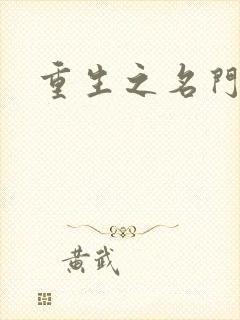 重生之名門
黃武